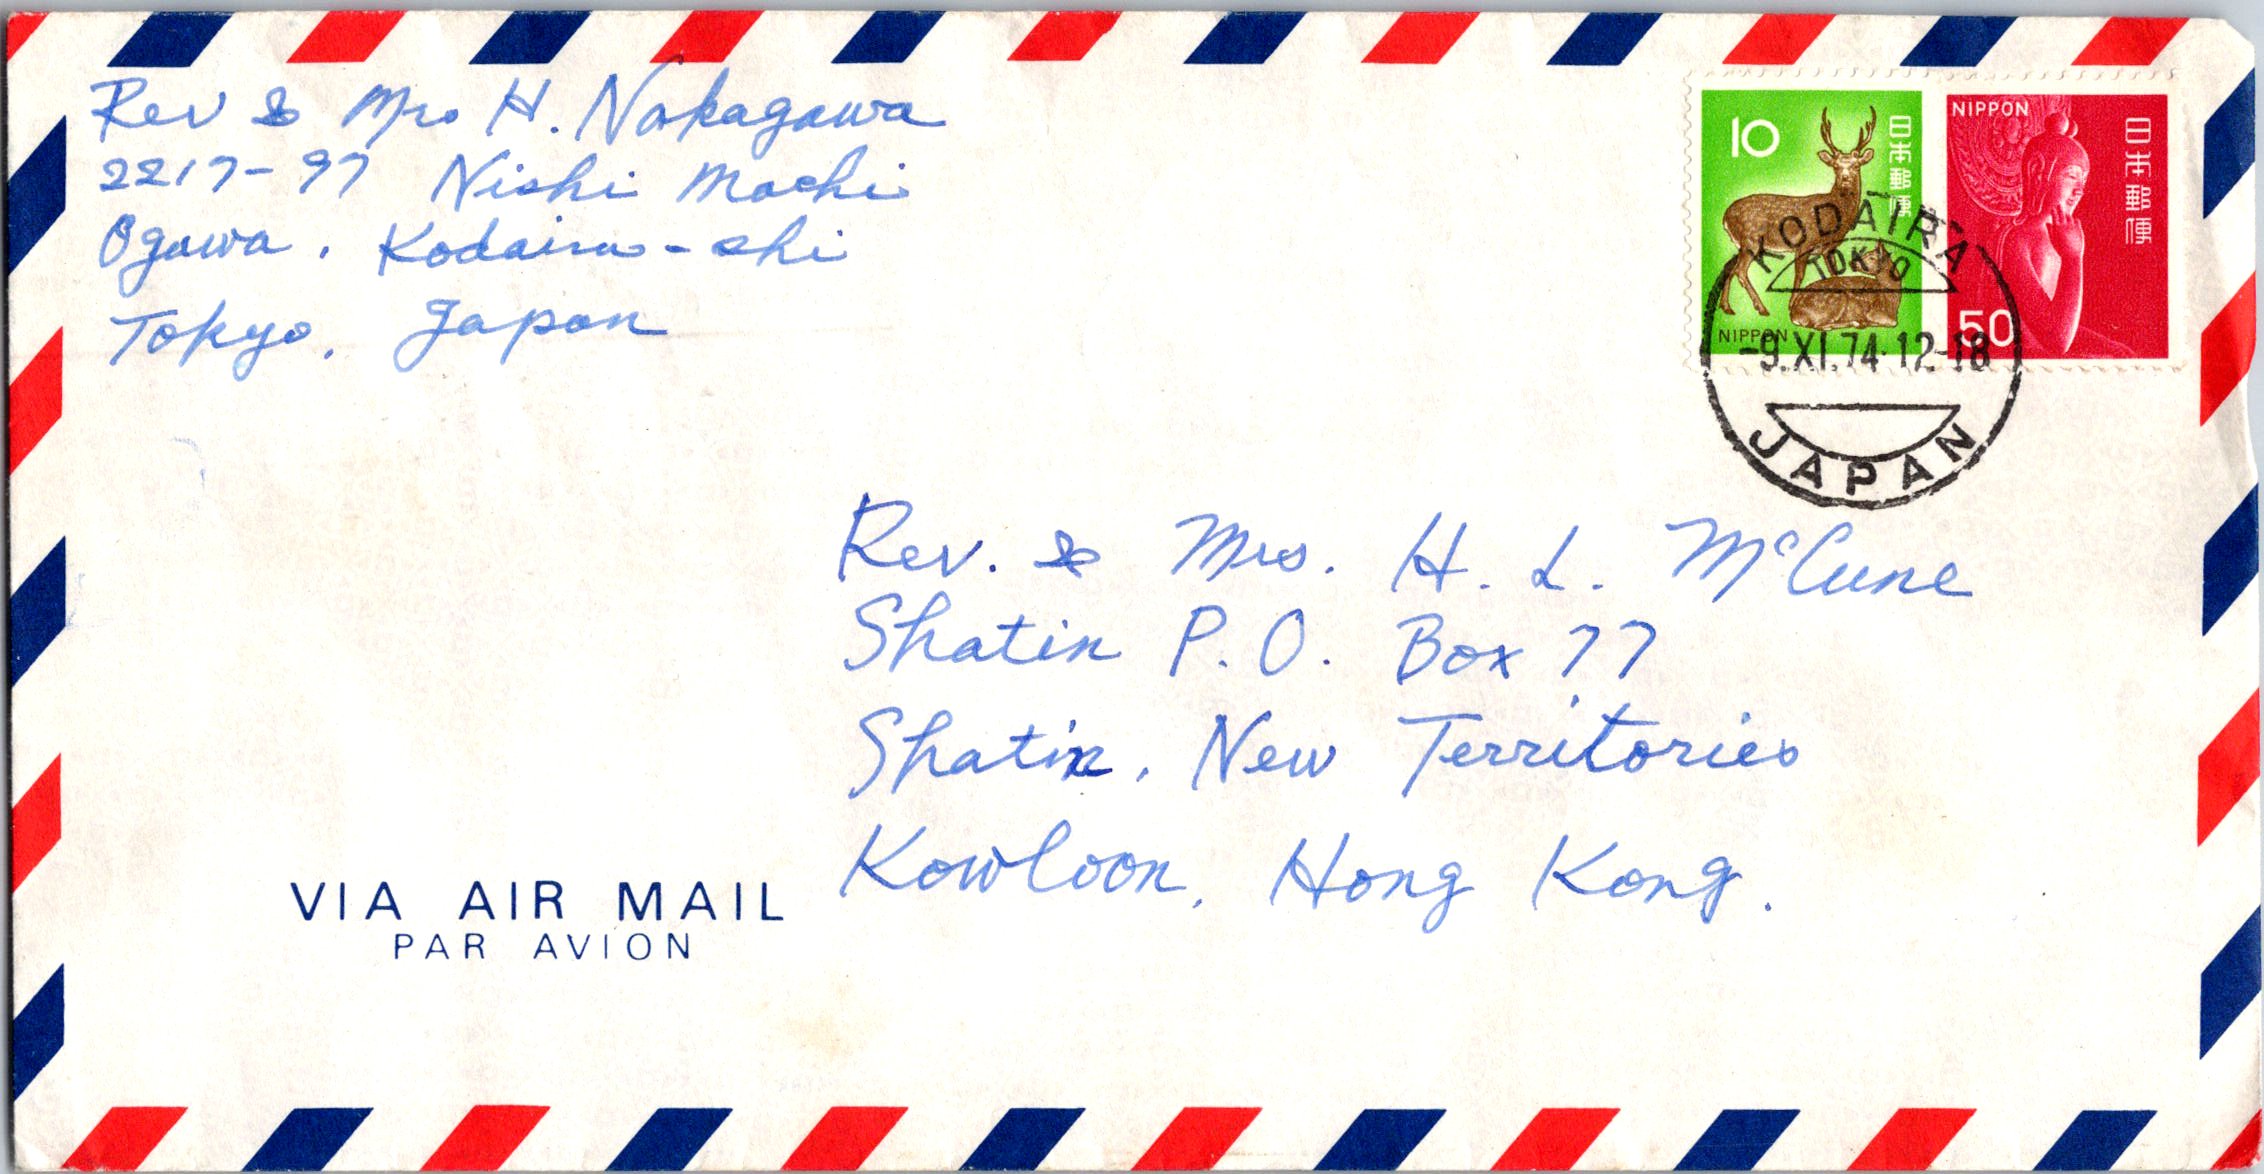 Rev & Mrs H. Nakagawa
2217-97 Nishi Machi
Ogawa, Kodaira-shi
Tokyo, Japan
10
日本郵便
NIPPON
NIPPON
日本郵便
50
KODAIRA
TOKYO
-9.XI.74.12-18
JAPAN
Rev. & Mrs. H. L. McCune
Shatin P.O. Box 77
Shatin, New Territories
Kowloon, Hong Kong.
VIA AIR MAIL
PAR AVION